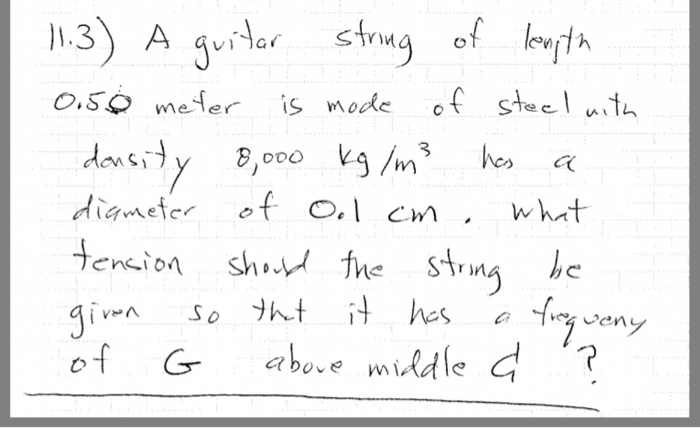 11.3) A guitar string of length
0.50 meter is made of steel with
density 8,000 kg/m³ has a
diameter of 0.1 cm. What
tension should the string be
given so that it has a frequeny
of G above middle C ?